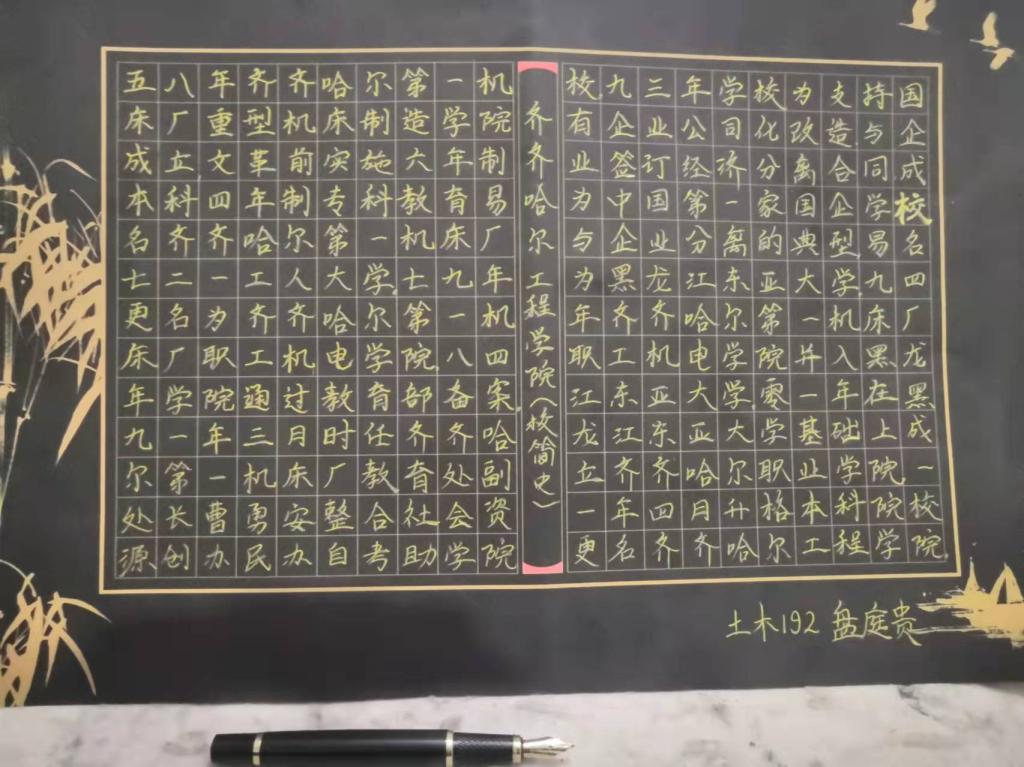 五八年齐齐哈尔第一机
床厂重型机床制造学院
成立文革前实施六年制
本科四年制专科教育易
名齐齐哈尔第一机床厂
七二一工人大学,七九年
更名为齐齐哈尔第一机
床厂职工机电学院,八四
年学院通过教育部备案,
九一年三月时任齐齐哈
尔第一机床厂教育处副
处长曹勇安整合社会资
源创办民办自考助学院
齐齐哈尔工程学院(校简史)
校九三年学校为支持国
有企业公司化改造与企
业签订经济分离合同成
为中国第一家国企学校
与企业分离的典型易名
为黑龙江东亚大学,九四
年齐齐哈尔第一机床厂
职工机电学院并入黑龙
江东亚大学,零一年在黑
龙江东亚大学基础上成
立齐齐哈尔职业学院一
一年四月升格本科院校
更名齐齐哈尔工程学院.
土木192 盘庭贵